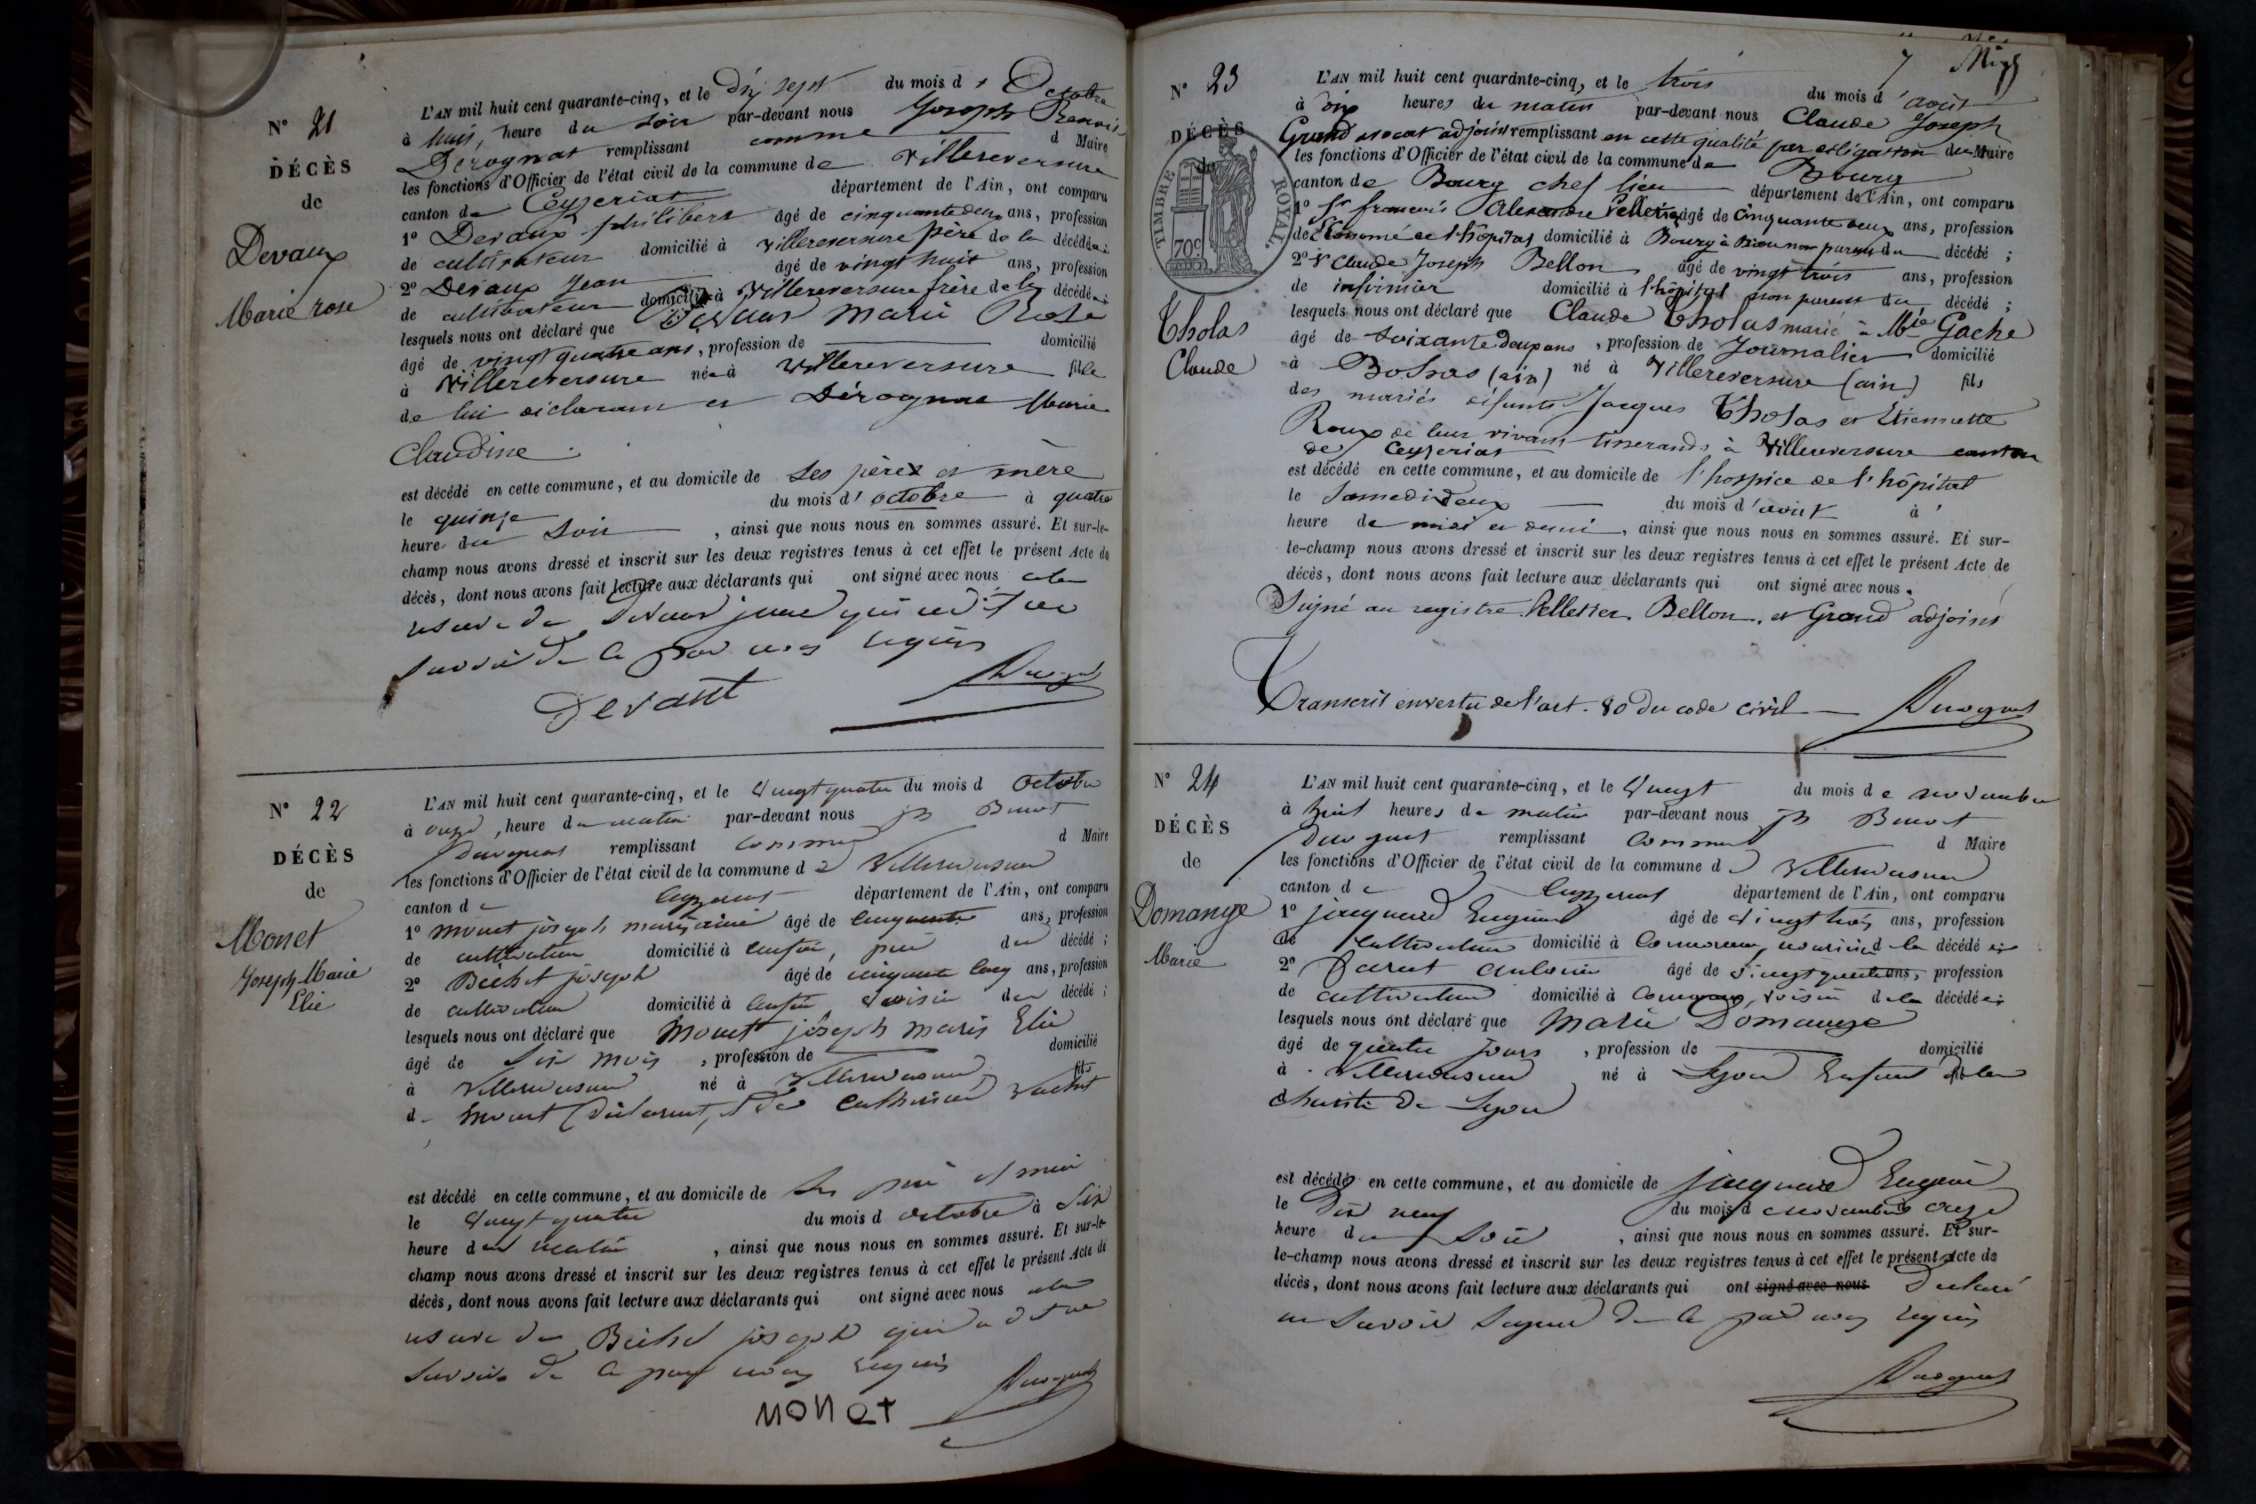 N° 21
DÉCÈS
de
Devaux
Marie rose
L'AN mil huit cent quarante-cinq, et le dix sept du mois d'Octobre
à huit, heure du soir par-devant nous Joseph Benoit
Dérognat remplissant comme d Maire
les fonctions d'Officier de l'état civil de la commune de Villereversure
canton de Ceyzeriat département de l'Ain, ont comparu
1° Devaux philibert âgé de cinquante deux ans, profession
de cultivateur domicilié à Villereversure père de la décédée;
2° Devaux Jean âgé de vingt huit ans, profession
de cultivateur domicilié à Villereversure frère de la décédée;
lesquels nous ont déclaré que Devaux Marie Rose
âgé de vingt quatre ans, profession de domicilié
à Villereversure née à Villereversure fille
de lui déclarant et Dérognat Marie
Claudine
est décédé en cette commune, et au domicile de ses père et mère
le quinze du mois d'octobre à quatre
heure du soir, ainsi que nous nous en sommes assuré. Et sur-le-
champ nous avons dressé et inscrit sur les deux registres tenus à cet effet le présent Acte de
décès, dont nous avons fait lecture aux déclarants qui ont signé avec nous à la
réserve de Devaux jean qui a dit ne
savoir de ce par nous requis
Devaut
N° 22
DÉCÈS
de
Monet
Joseph Marie
Elie
L'AN mil huit cent quarante-cinq, et le vingt quatre du mois d octobre
à onze, heure du matin par-devant nous j B Benoit
Derognat remplissant comme d Maire
les fonctions d'Officier de l'état civil de la commune de Villereversure
canton de Ceyzeriat département de l'Ain, ont comparu
1° Monet joseph marie âgé de cinquante ans, profession
de cultivateur domicilié à père du décédé;
2° Béchet joseph âgé de cinquante cinq ans, profession
de cultivateur domicilié à voisin du décédé;
lesquels nous ont déclaré que Monet joseph marie Elie
âgé de six mois, profession de domicilié
à Villereversure né à Villereversure fils
de Monet déclarant, et de Catherine Vachet
est décédé en cette commune, et au domicile de ses père et mère
le vingt quatre du mois d octobre à six
heure du matin, ainsi que nous nous en sommes assuré. Et sur-le-
champ nous avons dressé et inscrit sur les deux registres tenus à cet effet le présent Acte de
décès, dont nous avons fait lecture aux déclarants qui ont signé avec nous à la
réserve de Béchet joseph qui a dit ne
savoir de ce par nous requis
MONET
7
N° 23
DÉCÈS
de
TIMBRE ROYAL
70c
Tholas
Claude
L'AN mil huit cent quarante-cinq, et le trois du mois d'août
à dix heures du matin par-devant nous Claude Joseph
Grand avocat adjoint remplissant en cette qualité par délégation du Maire
les fonctions d'Officier de l'état civil de la commune de Bourg
canton de Bourg chef lieu département de l'Ain, ont comparu
1° Sr francois Alexandre Pelletier âgé de cinquante deux ans, profession
de Econome de l'hôpital domicilié à Bourg non parent du décédé;
2° Sr Claude Joseph Bellon âgé de vingt trois ans, profession
de infirmier domicilié à l'hôpital non parent du décédé;
lesquels nous ont déclaré que Claude Tholas marié à Mie Gache
âgé de soixante deux ans, profession de Journalier domicilié
à (ain) né à Villereversure (ain) fils
des mariés défunts Jacques Tholas et Etiennette
Roux de leur vivant tisserands à Villereversure canton
de Ceyzeriat
est décédé en cette commune, et au domicile de l'hospice de l'hôpital
le Samedi deux du mois d'aout à
heure de midi et demi, ainsi que nous nous en sommes assuré. Et sur-
le-champ nous avons dressé et inscrit sur les deux registres tenus à cet effet le présent Acte de
décès, dont nous avons fait lecture aux déclarants qui ont signé avec nous.
Signé au registre Pelletier Bellon, et Grand adjoint
Transcrit en vertu de l'art. 80 du code civil
N° 24
DÉCÈS
de
Domange
Marie
L'AN mil huit cent quarante-cinq, et le vingt du mois de novembre
à huit heures du matin par-devant nous j B Benoit
Derognat remplissant comme d Maire
les fonctions d'Officier de l'état civil de la commune de Villereversure
canton de Ceyzeriat département de l'Ain, ont comparu
1° jacquand Eugène âgé de vingt trois ans, profession
de cultivateur domicilié à de la décédée
2° antoine âgé de vingt quatre ans, profession
de cultivateur domicilié à voisin de la décédée
lesquels nous ont déclaré que Marie Domange
âgé de quatre jours, profession de domicilié
à Villereversure né à Lyon Enfant de la
charité de Lyon
est décédé en cette commune, et au domicile de jacquand Eugène
le dix neuf du mois d novembre à onze
heure du soir, ainsi que nous nous en sommes assuré. Et sur-
le-champ nous avons dressé et inscrit sur les deux registres tenus à cet effet le présent Acte de
décès, dont nous avons fait lecture aux déclarants qui ont signé avec nous déclaré
ne savoir signer de ce par nous requis